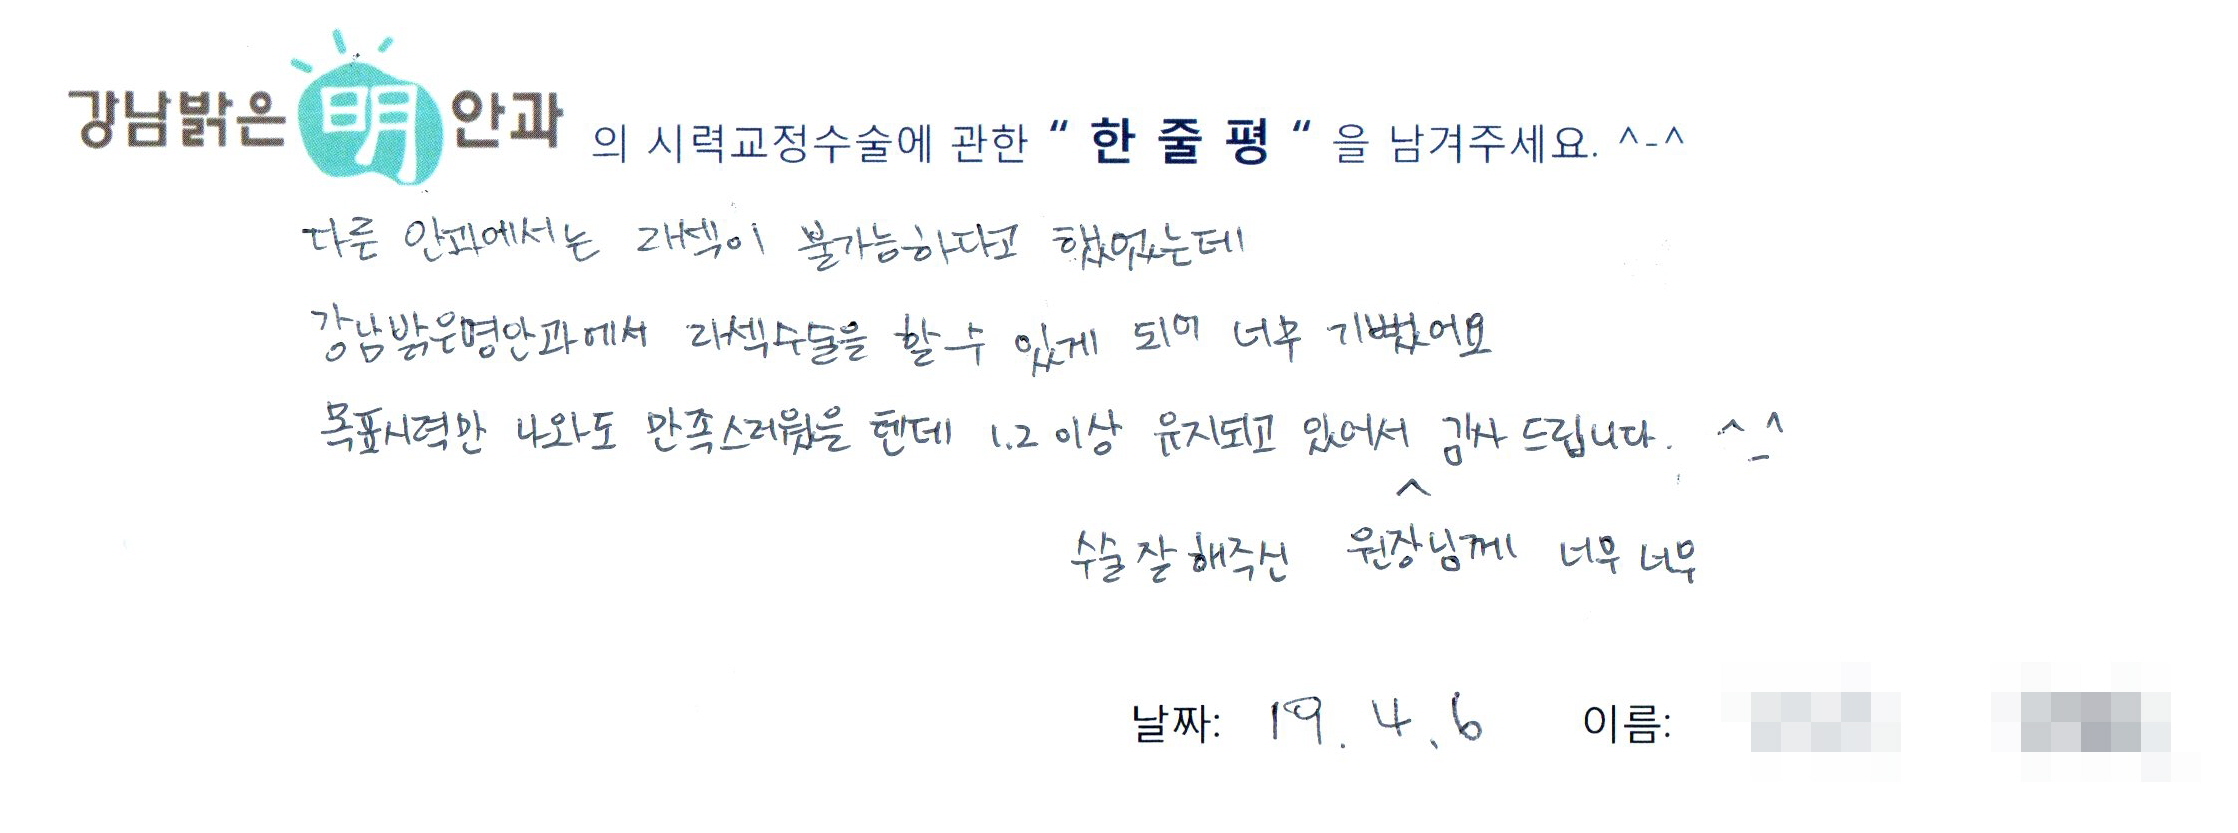 강남밝은明안과 의 시력교정수술에 관한 “ 한 줄 평 “ 을 남겨주세요. ^-^
다른 안과에서는 라섹이 불가능하다고 했었는데
강남밝은명안과에서 라섹수술을 할 수 있게 되어 너무 기뻤어요
목표시력만 나와도 만족스러웠을 텐데 1.2 이상 유지되고 있어서 감사 드립니다. ^_^
^
수술 잘 해주신 원장님께 너무 너무
날짜: 19. 4. 6 이름: